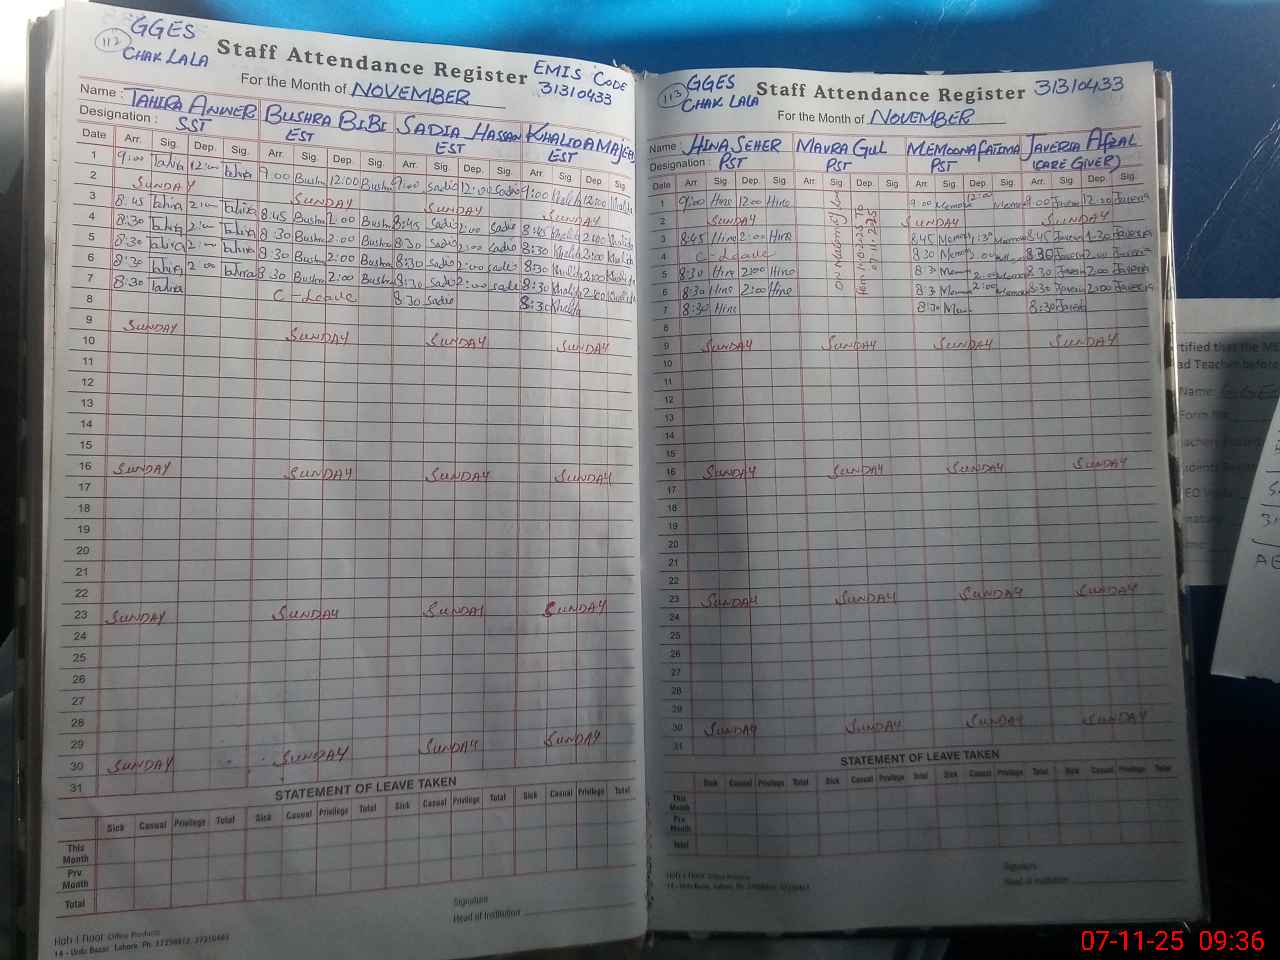 GGES
112
CHAK LALA
Staff Attendance Register
EMIS CODE
31310433
For the Month of NOVEMBER
Name : TAHIRA ANWER BUSHRA BIBI SADIA HASSAN KHALIDA MAJEED
Designation : SST EST EST EST
Date Arr. Sig. Dep. Sig. Arr. Sig. Dep. Sig. Arr. Sig. Dep. Sig. Arr. Sig. Dep. Sig.
1 9:00 Tahira 12:00 Tahira 9:00 Bushra 12:00 Bushra 9:00 Sadia 12:00 Sadia 9:00 Khalida 12:00 Khalida
2 SUNDAY SUNDAY SUNDAY SUNDAY
3 8:45 Tahira 2:00 Tahira 8:45 Bushra 2:00 Bushra 8:45 Sadia 2:00 Sadia 8:45 Khalida 2:00 Khalida
4 8:30 Tahira 2:00 Tahira 8:30 Bushra 2:00 Bushra 8:30 Sadia 2:00 Sadia 8:30 Khalida 2:00 Khalida
5 8:30 Tahira 2:00 Tahira 8:30 Bushra 2:00 Bushra 8:30 Sadia 2:00 Sadia 8:30 Khalida 2:00 Khalida
6 8:30 Tahira 2:00 Tahira 8:30 Bushra 2:00 Bushra 8:30 Sadia 2:00 Sadia 8:30 Khalida 2:00 Khalida
7 8:30 Tahira C-Leave 8:30 Sadia 8:30 Khalida
8
9 SUNDAY SUNDAY SUNDAY SUNDAY
10
11
12
13
14
15
16 SUNDAY SUNDAY SUNDAY SUNDAY
17
18
19
20
21
22
23 SUNDAY SUNDAY SUNDAY SUNDAY
24
25
26
27
28
29
30 SUNDAY SUNDAY SUNDAY SUNDAY
31
STATEMENT OF LEAVE TAKEN
Sick Casual Privilege Total Sick Casual Privilege Total Sick Casual Privilege Total Sick Casual Privilege Total
This Month
Prv Month
Total
Signature
Head of Institution
Office Products
14 - Urdu Bazar, Lahore. Ph:
113
GGES
CHAK LALA
Staff Attendance Register
31310433
For the Month of NOVEMBER
Name : HINA SEHER MAVRA GUL MEMOONA FATIMA JAVERIA AFZAL
Designation : PST PST PST (CARE GIVER)
Date Arr. Sig. Dep. Sig. Arr. Sig. Dep. Sig. Arr. Sig. Dep. Sig. Arr. Sig. Dep. Sig.
1 9:00 Hina 12:00 Hina 9:00 Memoona 12:00 Memoona 9:00 Javeria 12:00 Javeria
2 SUNDAY SUNDAY SUNDAY
3 8:45 Hina 2:00 Hina 8:45 Memoona 1:30 Memoona 8:45 Javeria 1:30 Javeria
4 C-Leave 8:30 Memoona 2:00 8:30 Javeria 2:00 Javeria
5 8:30 Hina 2:00 Hina 8:30 Memoona 2:00 8:30 Javeria 2:00 Javeria
6 8:30 Hina 2:00 Hina 8:30 Memoona 2:00 Memoona 8:30 Javeria 2:00 Javeria
7 8:30 Hina 8:30 Memoona 8:30 Javeria
8
9 SUNDAY SUNDAY SUNDAY SUNDAY
10
11
12
13
14
15
16 SUNDAY SUNDAY SUNDAY SUNDAY
17
18
19
20
21
22
23 SUNDAY SUNDAY SUNDAY SUNDAY
24
25
26
27
28
29
30 SUNDAY SUNDAY SUNDAY SUNDAY
31
STATEMENT OF LEAVE TAKEN
Sick Casual Privilege Total Sick Casual Privilege Total Sick Casual Privilege Total Sick Casual Privilege Total
This Month
Prv Month
Total
Signature
Head of Institution
Office Products
14 - Urdu Bazar, Lahore. Ph:
07-11-25 09:36